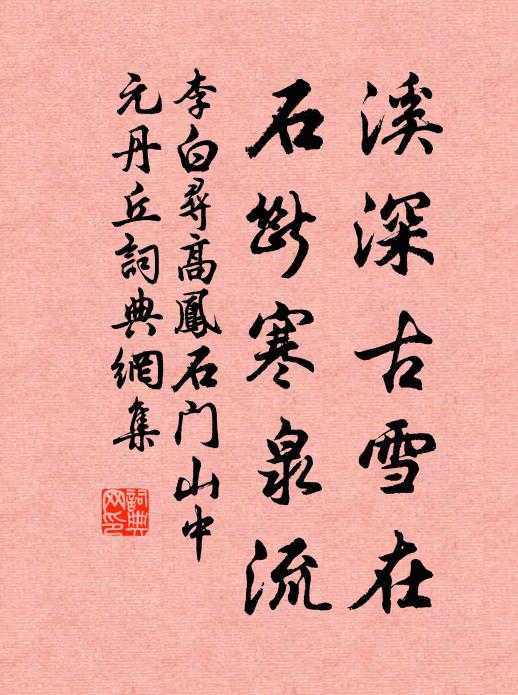 溪深古雪在
石斷寒泉流
李白尋高鳳石门山中
元丹丘詞典網集
詞典网印